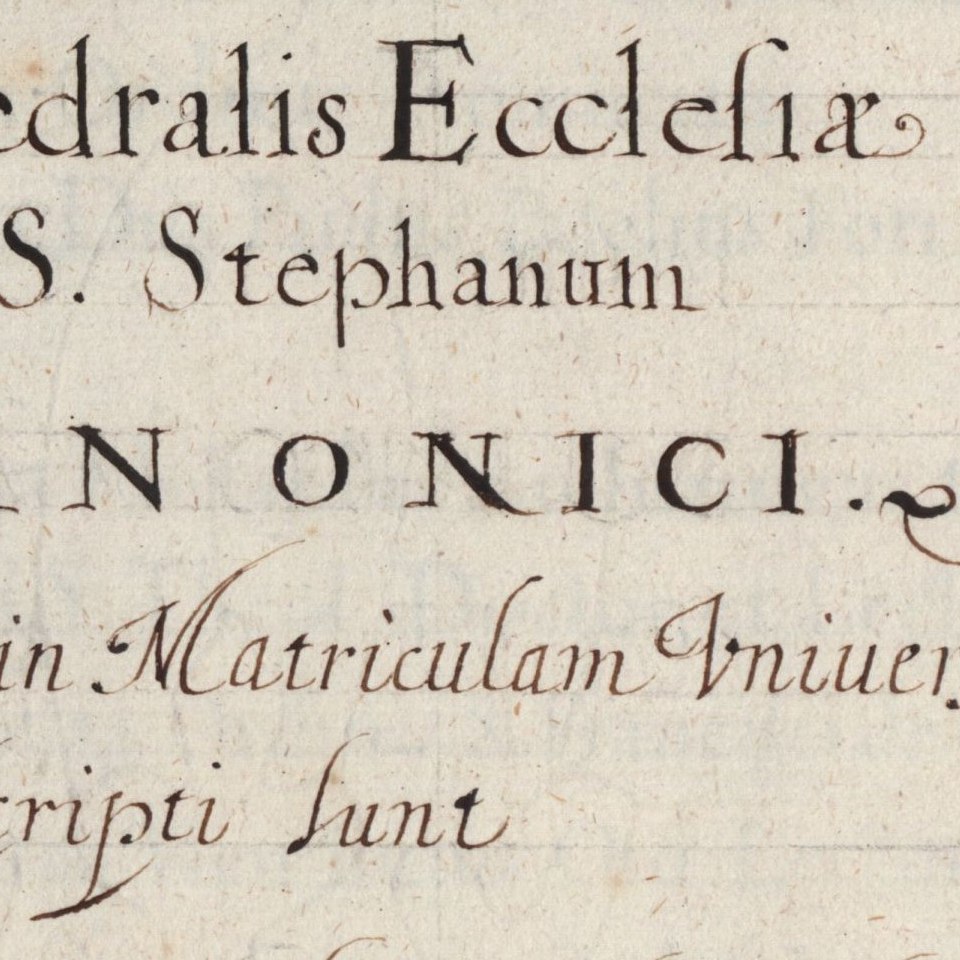 edralis Eccleſiæ
S. Stephanum
NONICI.
in Matriculam Vniuer
cripti ſunt